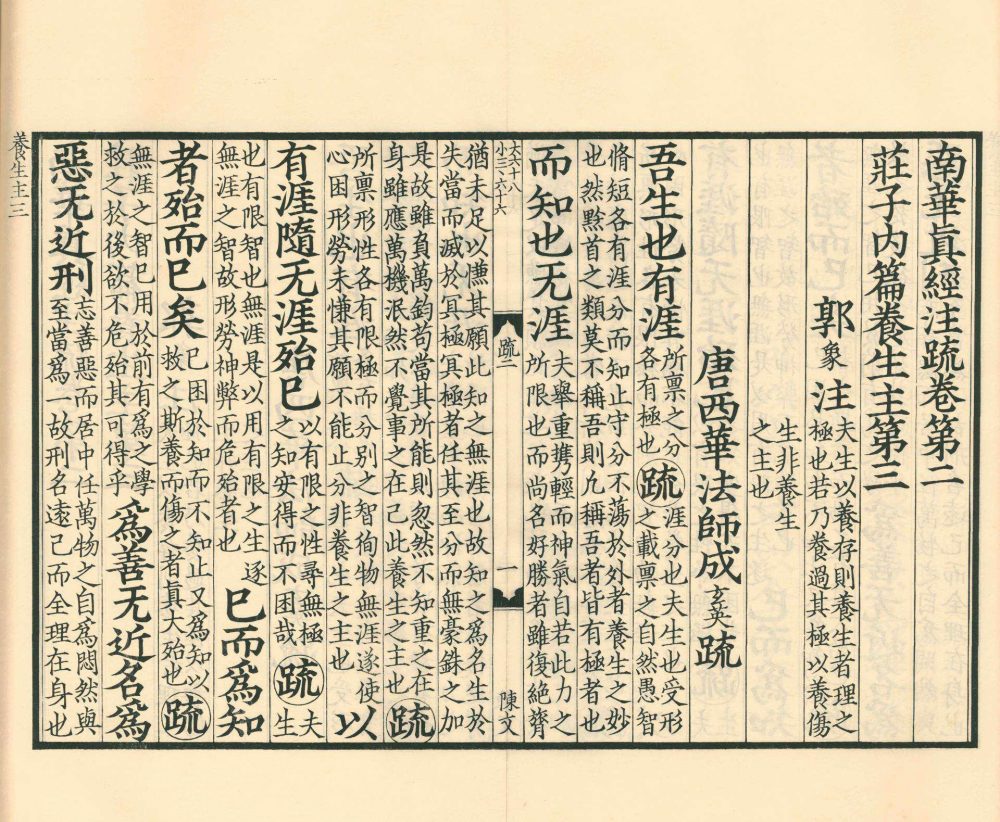 南華眞經注疏卷第二
莊子內篇養生主第三
郭象注夫生以養存則養生者理之極也若乃養過其極以養傷
生非養生之主也
唐西華法師成玄英疏
吾生也有涯所禀之分各有極也疏涯分也夫生也受形之載禀之自然愚智
脩短各有涯分而知止守分不蕩於外者養生之妙
也然黔首之類莫不稱吾則凡稱吾者皆有極者也
而知也无涯夫舉重携輕而神氣自若此力之所限也而尚名好勝者雖復絕膂
大六十八
小三六十六
疏二
一
陳文
猶未足以慊其願此知之無涯也故知之爲名生於
失當而滅於冥極冥極者任其至分而無豪銖之加
是故雖負萬鈞苟當其所能則忽然不知重之在身雖應萬機泯然不覺事之在己此養生之主也疏
所禀形性各有限極而分別之智徇物無涯遂使心困形勞未慊其願不能止分非養生之主也以
有涯隨无涯殆巳以有限之性尋無極之知安得而不困哉疏夫生
也有限智也無涯是以用有限之生逐無涯之智故形勞神弊而危殆者也巳而爲知
者殆而巳矣巳困於知而不知止又爲知以救之斯養而傷之者眞大殆也疏
無涯之智巳用於前有爲之學救之於後欲不危殆其可得乎爲善无近名爲
惡无近刑忘善惡而居中任萬物之自爲悶然與至當爲一故刑名遠己而全理在身也
養生主三